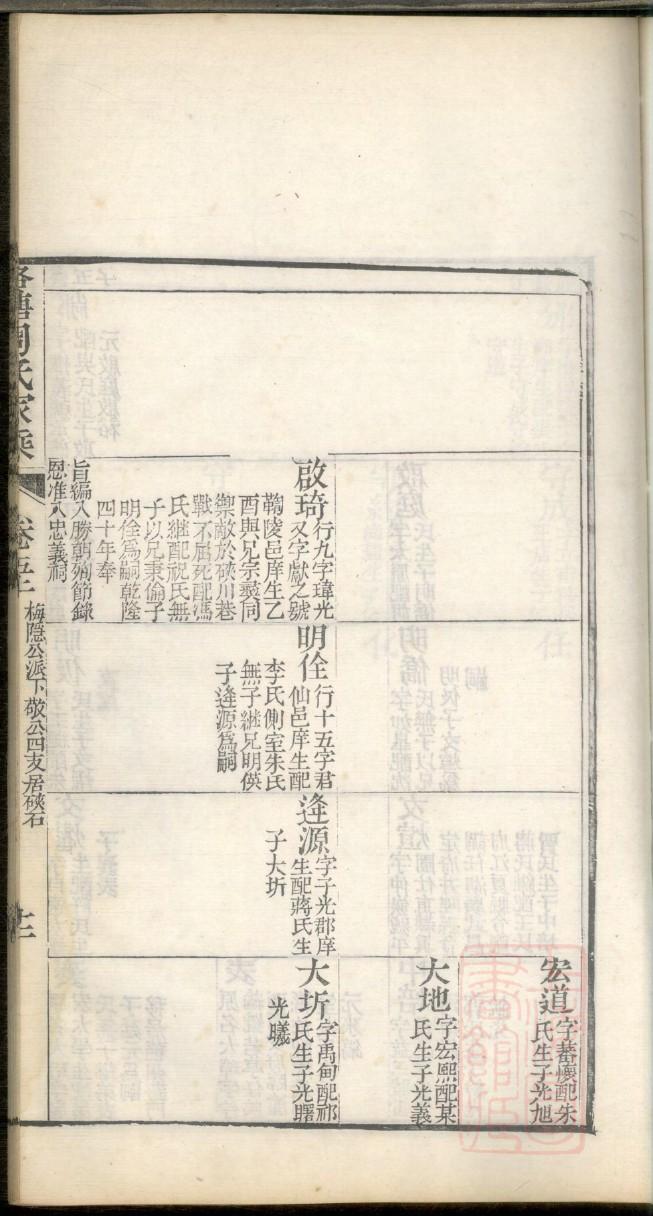 啟琦
行九字瑋光
又字獻之號
鞠陵邑庠生乙
酉與兄宗彝同
禦敵於硤川巷
戰不屈死配馮
氏繼配祝氏無
子以兄秉倫子
明佺為嗣乾隆
四十年奉
旨編入勝朝殉節錄
恩准入忠義祠
明佺
行十五字君
仙邑庠生配
李氏側室朱氏
無子繼兄明偀
子逢源為嗣
逢源
字子光郡庠
生配蔣氏生
子大圻
宏道
字蕃懊配朱
氏生子光旭
大地
字宏熙配某
氏生子光義
大圻
字禹甸配祁
氏生子光曙
光曦
周氏家乘
卷五
梅隱公派下敬公四支居硤石